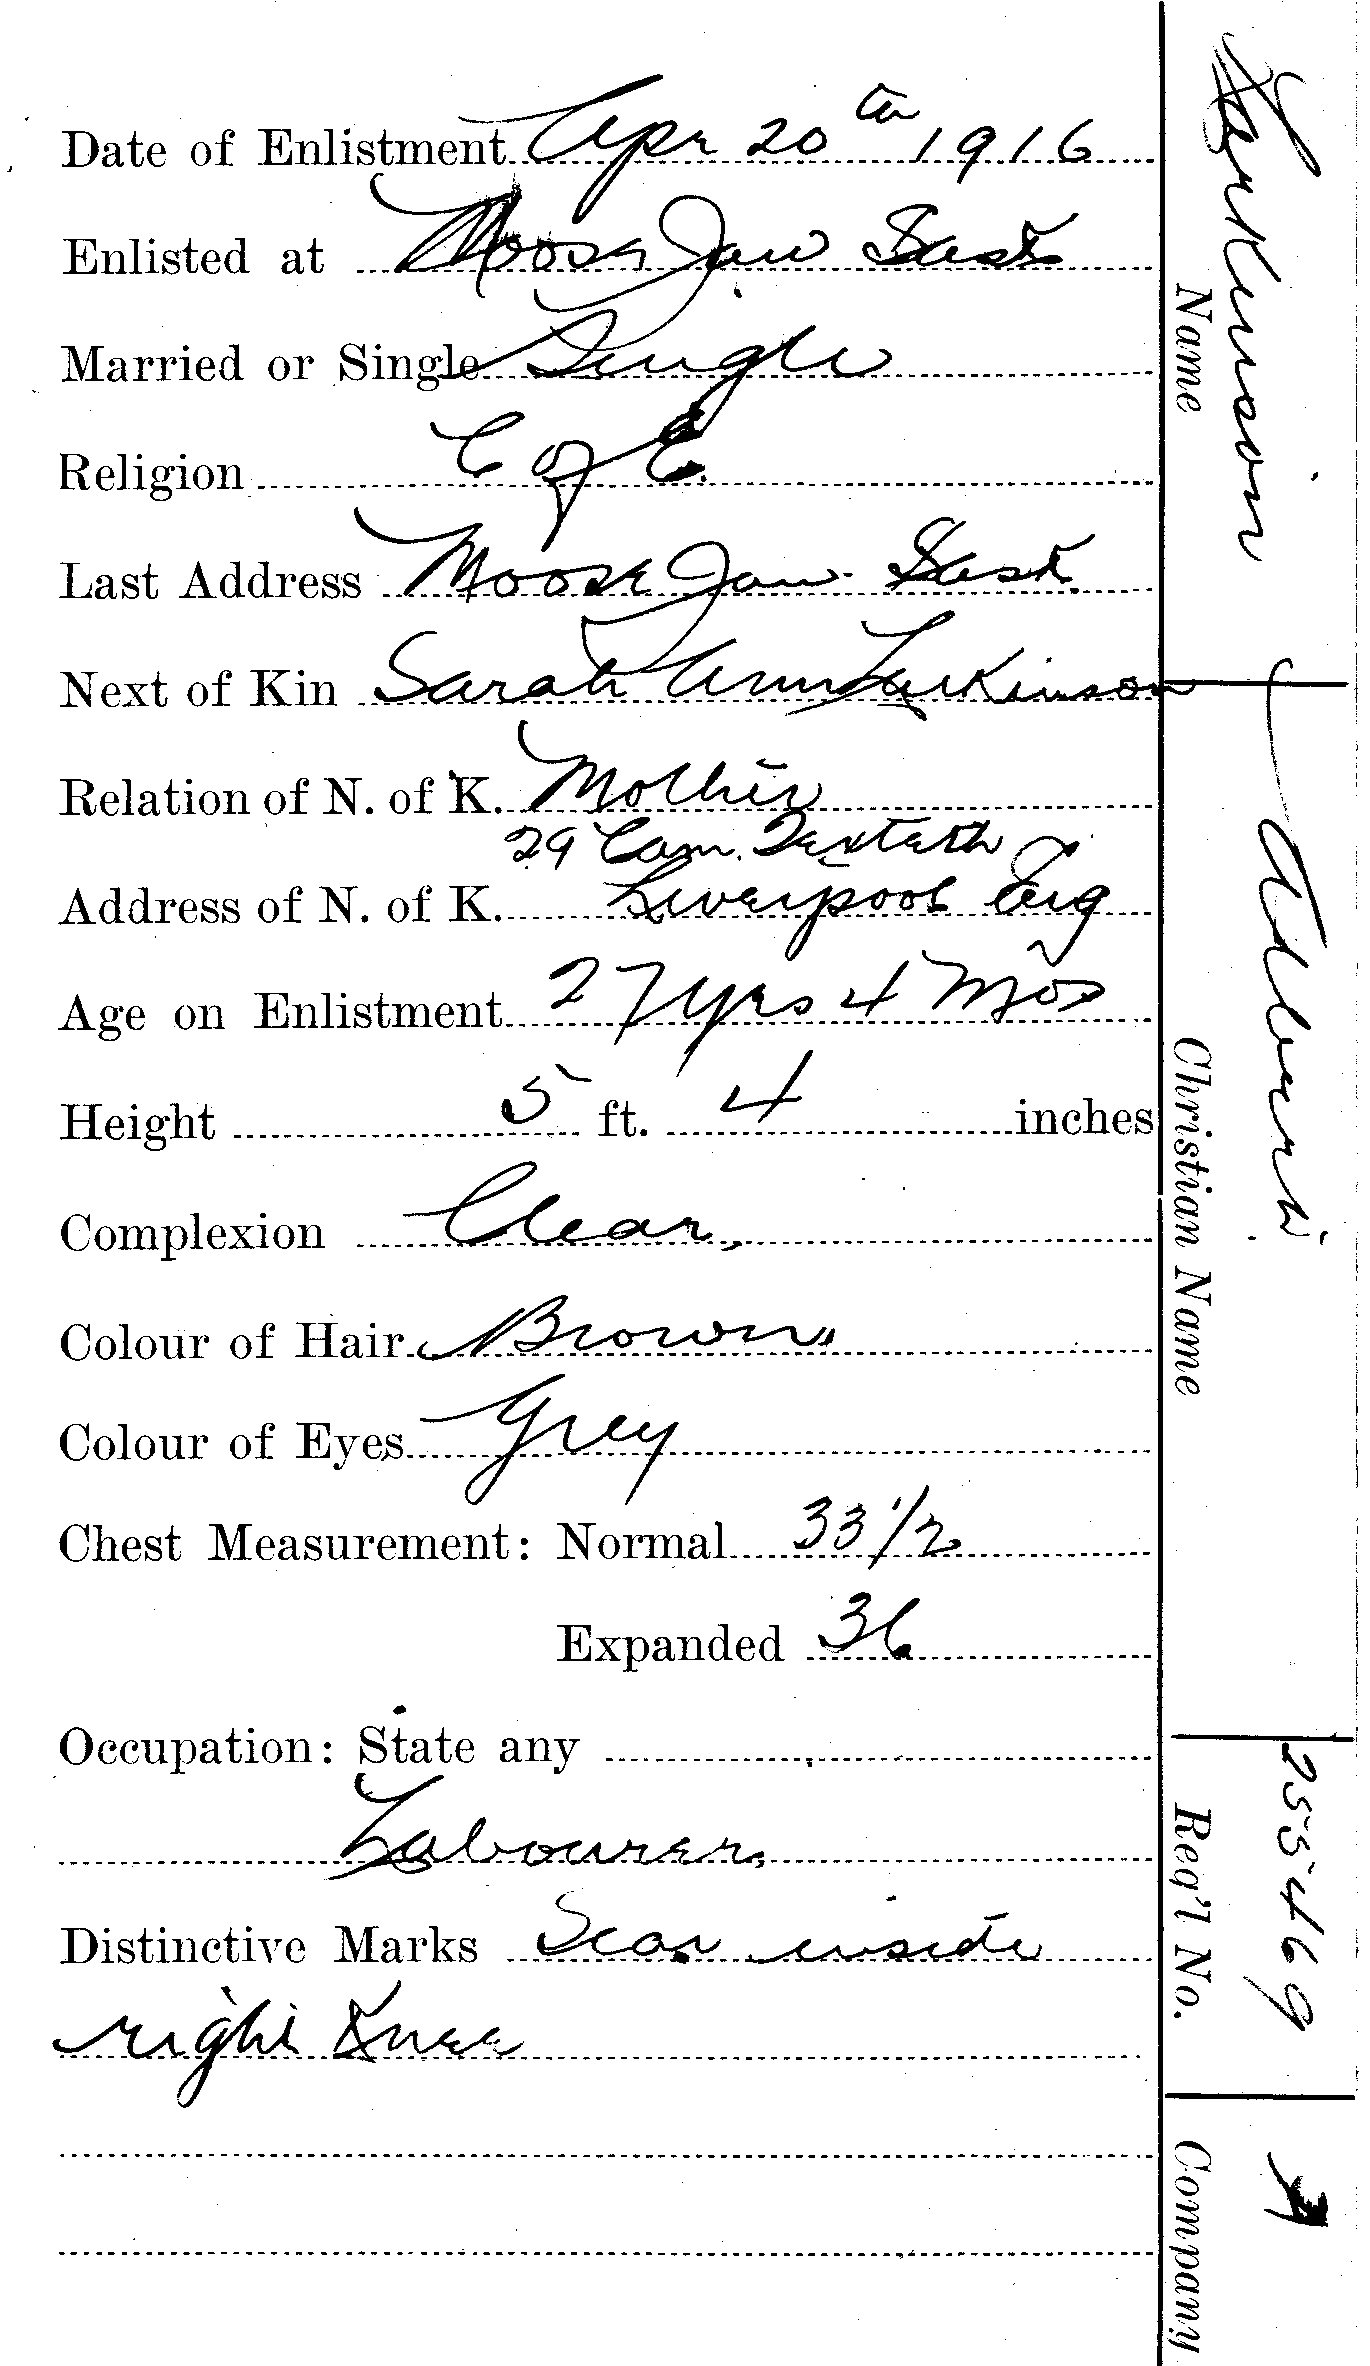 Date of Enlistment Apr 20th 1916
Enlisted at Moose Jaw Sask
Married or Single Single
Religion C of E.
Last Address Moose Jaw. Sask.
Next of Kin Sarah Ann Larkinson
Relation of N. of K. Mother
29 Cam. Texteth
Address of N. of K. Liverpool Eng
Age on Enlistment 27 yrs 4 Mos
Height 5 ft. 4 inches
Complexion Clear,
Colour of Hair Brown
Colour of Eyes Grey
Chest Measurement: Normal 33 1/2
Expanded 36
Occupation: State any
Labourer,
Distinctive Marks Scar inside
right Knee
Larkinson
Name
Albert
Christian Name
255469
Req'l No.
Company